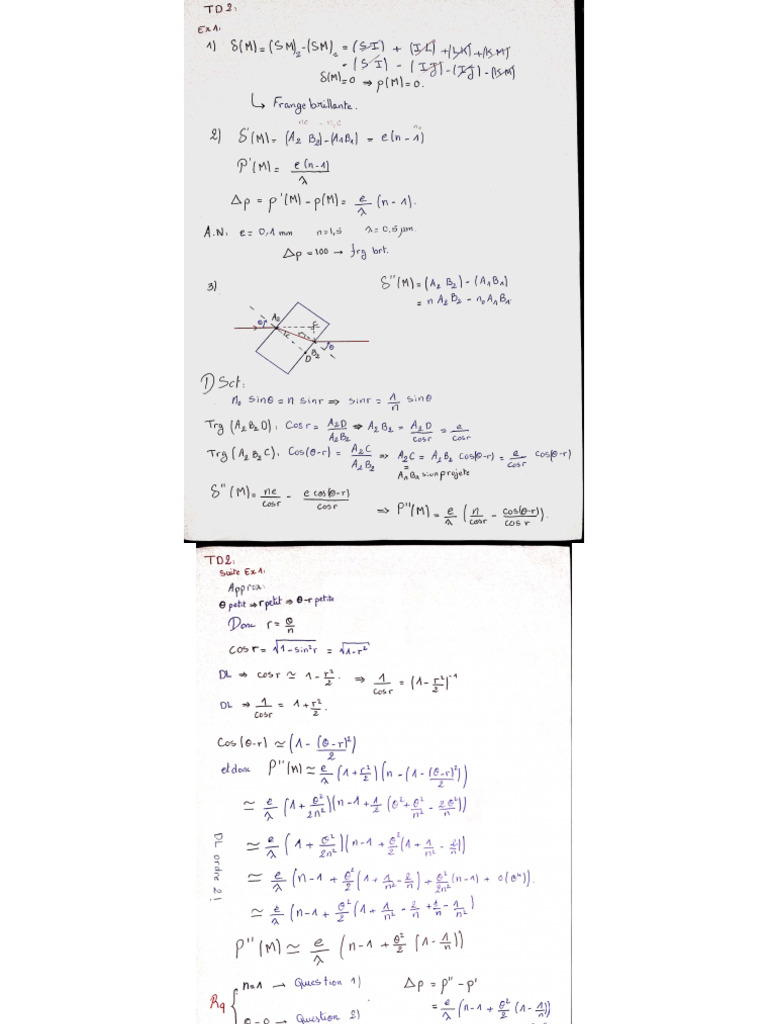 TD2:
Ex1:
1) δ(M) = (SM)₂ - (SM)₁ = (SI) + (IL) + (LK) + (KM)
- (SI) - (IJ) - (IJ) - (KM)
δ(M)=0 ⇒ p(M)=0.
↳ Frange brillante.
2) δ'(M) = (A₂ B₂) - (A₁B₁) = e(n-1)
P'(M) = e(n-1)/λ
Δp = p'(M) - p(M) = e/λ (n-1).
A.N: e = 0,1 mm n=1,5 λ = 0,5 µm.
Δp = 100 → frg brt.
3) δ''(M) = (A₂ B₂) - (A₁B₁)
= n A₂B₂ - n₀ A₁B₁
A₂ C θ r B₂ θ D
D Sct:
n₀ sinθ = n sinr ⇒ sinr = 1/n sinθ
Trg (A₂B₂D): Cosr = A₂D/A₂B₂ ⇒ A₂B₂ = A₂D/cosr = e/cosr
Trg (A₂B₂C): Cos(θ-r) = A₂C/A₂B₂ ⇒ A₂C = A₂B₂ cos(θ-r) = e/cosr cos(θ-r)
= A₁B₁ si on projete
δ''(M) = ne/cosr - e cos(θ-r)/cosr
⇒ P''(M) = e/λ (n/cosr - cos(θ-r)/cosr).
TD2:
Suite Ex1:
Approx:
θ petit ⇒ r petit ⇒ θ-r petite
Donc r = θ/n
cosr = √(1-sin²r) = √(1-r²)
DL ⇒ cosr ≃ 1 - r²/2. ⇒ 1/cosr = (1 - r²/2)⁻¹
DL ⇒ 1/cosr = 1 + r²/2.
Cos(θ-r) ≃ (1 - (θ-r)²/2)
et donc P''(M) ≃ e/λ (1 + r²/2)(n - (1 - (θ-r)²/2))
≃ e/λ (1 + θ²/2n²)(n-1 + 1/2 (θ² + θ²/n² - 2θ²/n))
≃ e/λ (1 + θ²/2n²)(n-1 + θ²/2 (1 + 1/n² - 2/n))
DL ordre 2!
≃ e/λ (n-1 + θ²/2 (1 + 1/n² - 2/n) + θ²/2n² (n-1) + 0(θ⁴)).
≃ e/λ (n-1 + θ²/2 (1 + 1/n² - 2/n + 1/n - 1/n²)
P''(M) ≃ e/λ (n-1 + θ²/2 (1 - 1/n))
Rq { n=1 → Question 1) Δp = p'' - p'
θ=0 → Question 2) = e/λ (n-1 + θ²/2 (1 - 1/n)